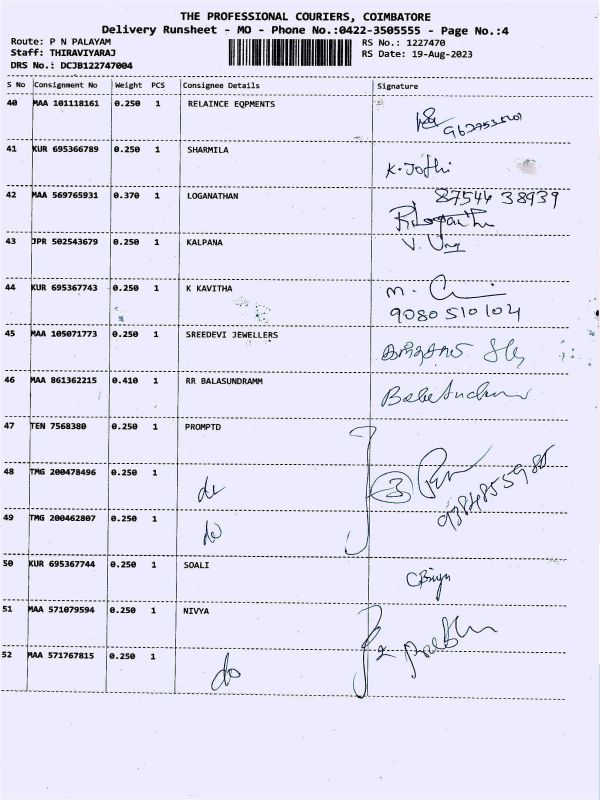 THE PROFESSIONAL COURIERS, COIMBATORE
Delivery Runsheet - MO - Phone No.:0422-3505555 - Page No.:4
Route: P N PALAYAM
Staff: THIRAVIYARAJ
DRS No.: DCJB122747004
RS No.: 1227470
RS Date: 19-Aug-2023
S No Consignment No Weight PCS Consignee Details Signature
40 MAA 101118161 0.250 1 RELAINCE EQPMENTS
41 KUR 695366789 0.250 1 SHARMILA K. Jothi
42 MAA 569765931 0.370 1 LOGANATHAN 87544 38939
43 JPR 502543679 0.250 1 KALPANA
44 KUR 695367743 0.250 1 K KAVITHA
9080 510104
45 MAA 105071773 0.250 1 SREEDEVI JEWELLERS
46 MAA 861362215 0.410 1 RR BALASUNDRAMM
47 TEN 7568380 0.250 1 PROMPTD
48 TMG 200478496 0.250 1 do 3
49 TMG 200462807 0.250 1 do
50 KUR 695367744 0.250 1 SOALI
51 MAA 571079594 0.250 1 NIVYA
52 MAA 571767815 0.250 1 do